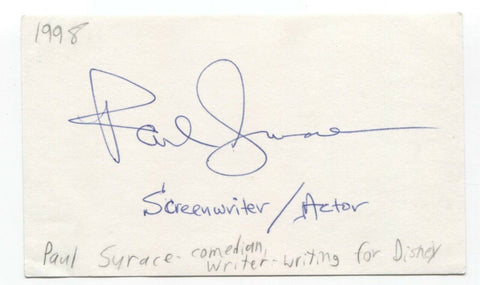 1998
Paul Surace
Screenwriter/Actor
Paul Surace - comedian,
writer - writing for Disney